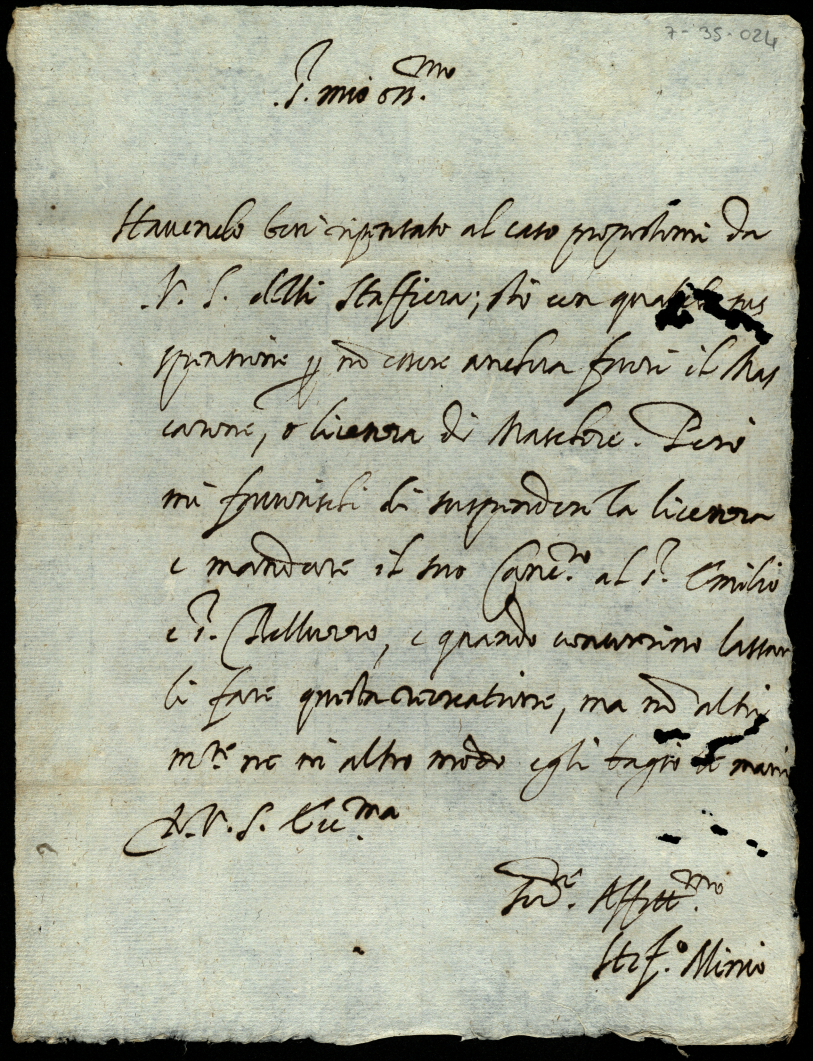 7-35-024
S.r mio oss.mo
Havendo ben ripensato al caso propostomi da
V. S. delli Staffiera; stò con qualche sus
pensione p nõ essere anchora fuori il Mas
carone, o licenza di Maschere. Però
mi favorischi di suspender la licenza
e mandare il suo Canc.ro al S.r Emilio
e S.r Belluzzo, e quando concorrino lassar
li fare questa recreatione, ma nõ altri
m.te ne in altro modo e gli bagio le mani
D. V. S. Ecc.ma
Ser.re Affett.mo
Stef.o Minio